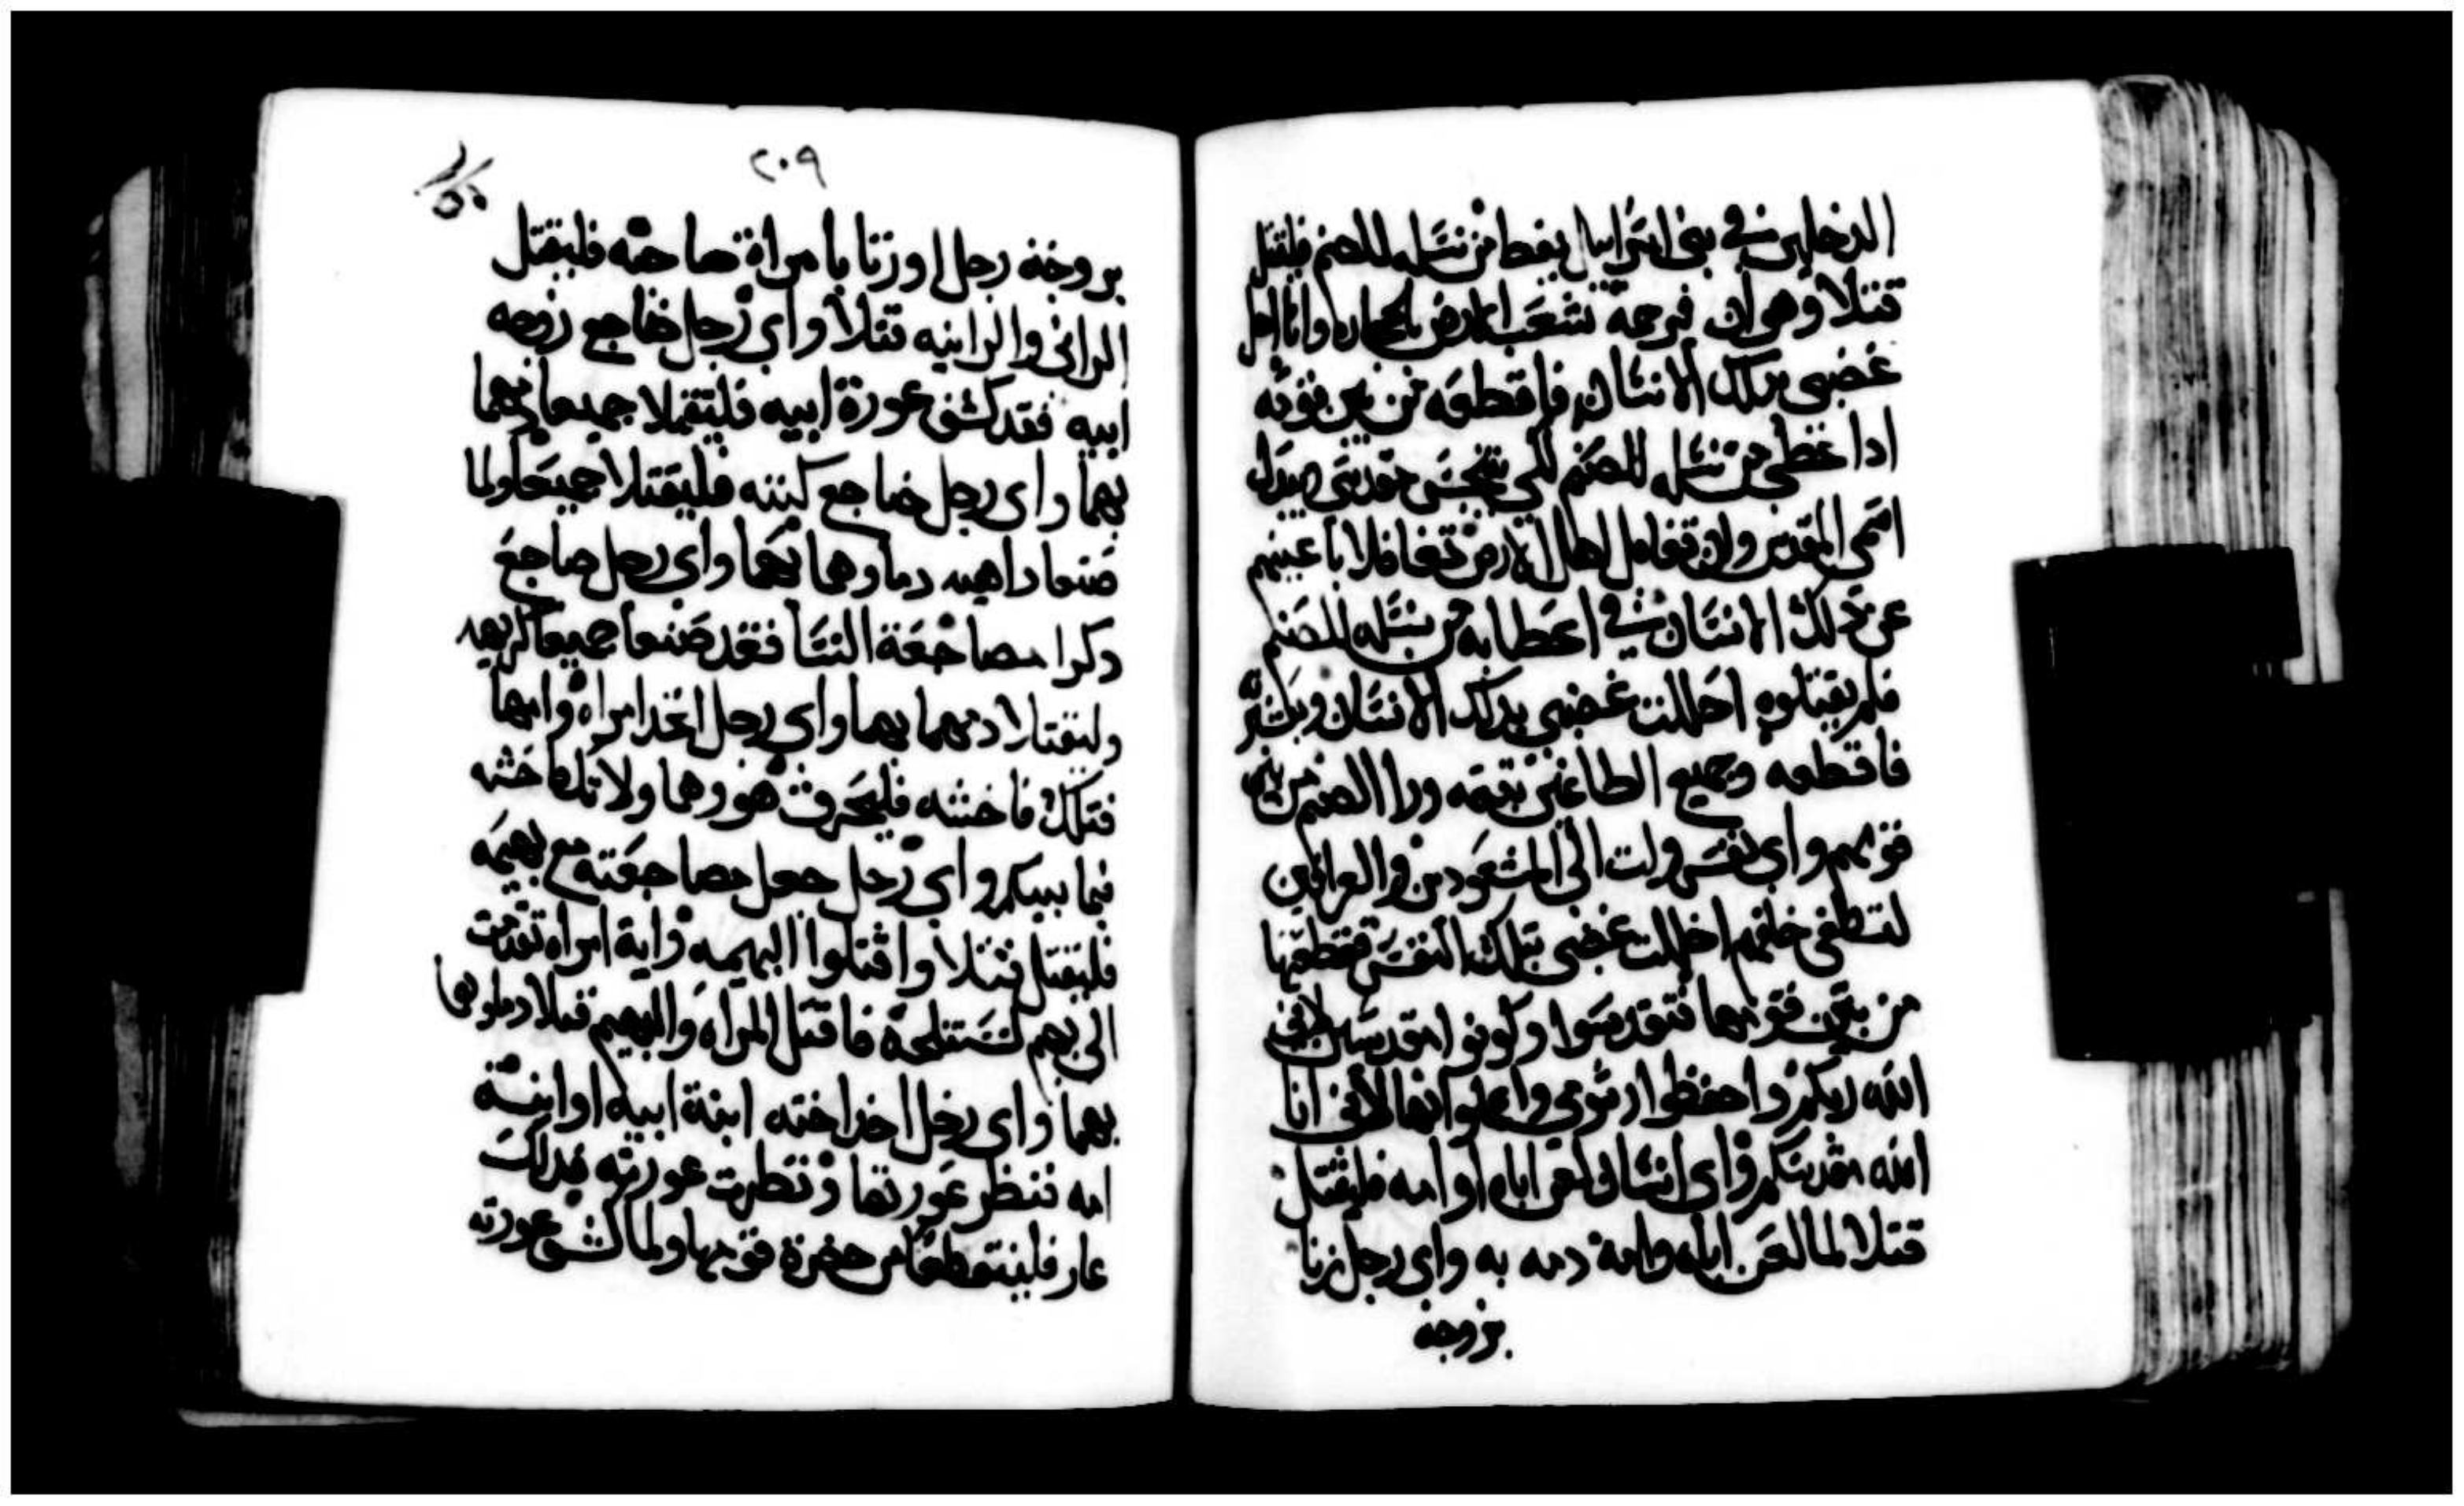 الدخلين في بني اسراييل يعط من نسله للصنم فليقتل
قتلا وهو ان فرجمه شعب الارض بالحجاره وانا احل
غضبي بدلك الانسان فاقطعه من بين قومه
ادا اعطى من نسله للصنم لكي ينجس مقدسي ويبدل
اسمي المقدس وان تغافل اهل الارض تغافلا باعينهم
عن دلك الانسان في اعطايه من نسله للصنم
فلم يقتلوه احللت غضبي بدلك الانسان وبعشيرته
فاقطعه وجميع الطاغين بتبعه ورا الصنم من بين
قومهم واي نفس ولت الى المشعودين والعرافين
لتطغى خلفهم احللت غضبي بتلك النفس فقطعتها
من بين قومها فتقدسوا وكونوا مقدسين لاني
الله ربكم واحفظوا رسومي واعملوا بها لاني انا
الله مقدسكم واي انسان لعن اباه او امه فليقتل
قتلا لما لعن اباه وامه دمه به واي رجل زنا
بزوجة
٢٠٩
بزوجة رجل او زنا بامراة صاحبه فليقتل
الزاني والزانيه قتلا واي رجل ضاجع زوجه
ابيه فقد كشف عورة ابيه فليقتلا جميعا دمهما
بهما واي رجل ضاجع كنته فليقتلا جميعا ولما
صنعا داهيه دماوهما بهما واي رجل ضاجع
دكرا مضاجعة النسا فقد صنعا جميعا كريهه
وليقتلا دمهما بهما واي رجل اتخد امراه وامها
فتلك فاحشه فليحرق هو وهما ولا تك فاحشه
فيما بينكم واي رجل جعل مضاجعته مع بهيمه
فليقتل قتلا واقتلوا البهيمه واية امراه تقدمت
الى بهيم لتستنكحه فاقتل المراه والبهيم قتلا دماوهما
بهما واي رجل اخد اخته ابنة ابيه او ابنة
امه فنظر عورتها ونظرت عورته فدلك
عار فلينقطعا من حضرة قومهما ولما كشف عورته